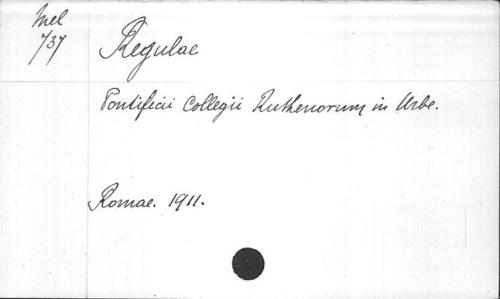 Mel
737
Regulae
Pontificii Collegii Ruthenorum in Urbe.
Romae. 1911.